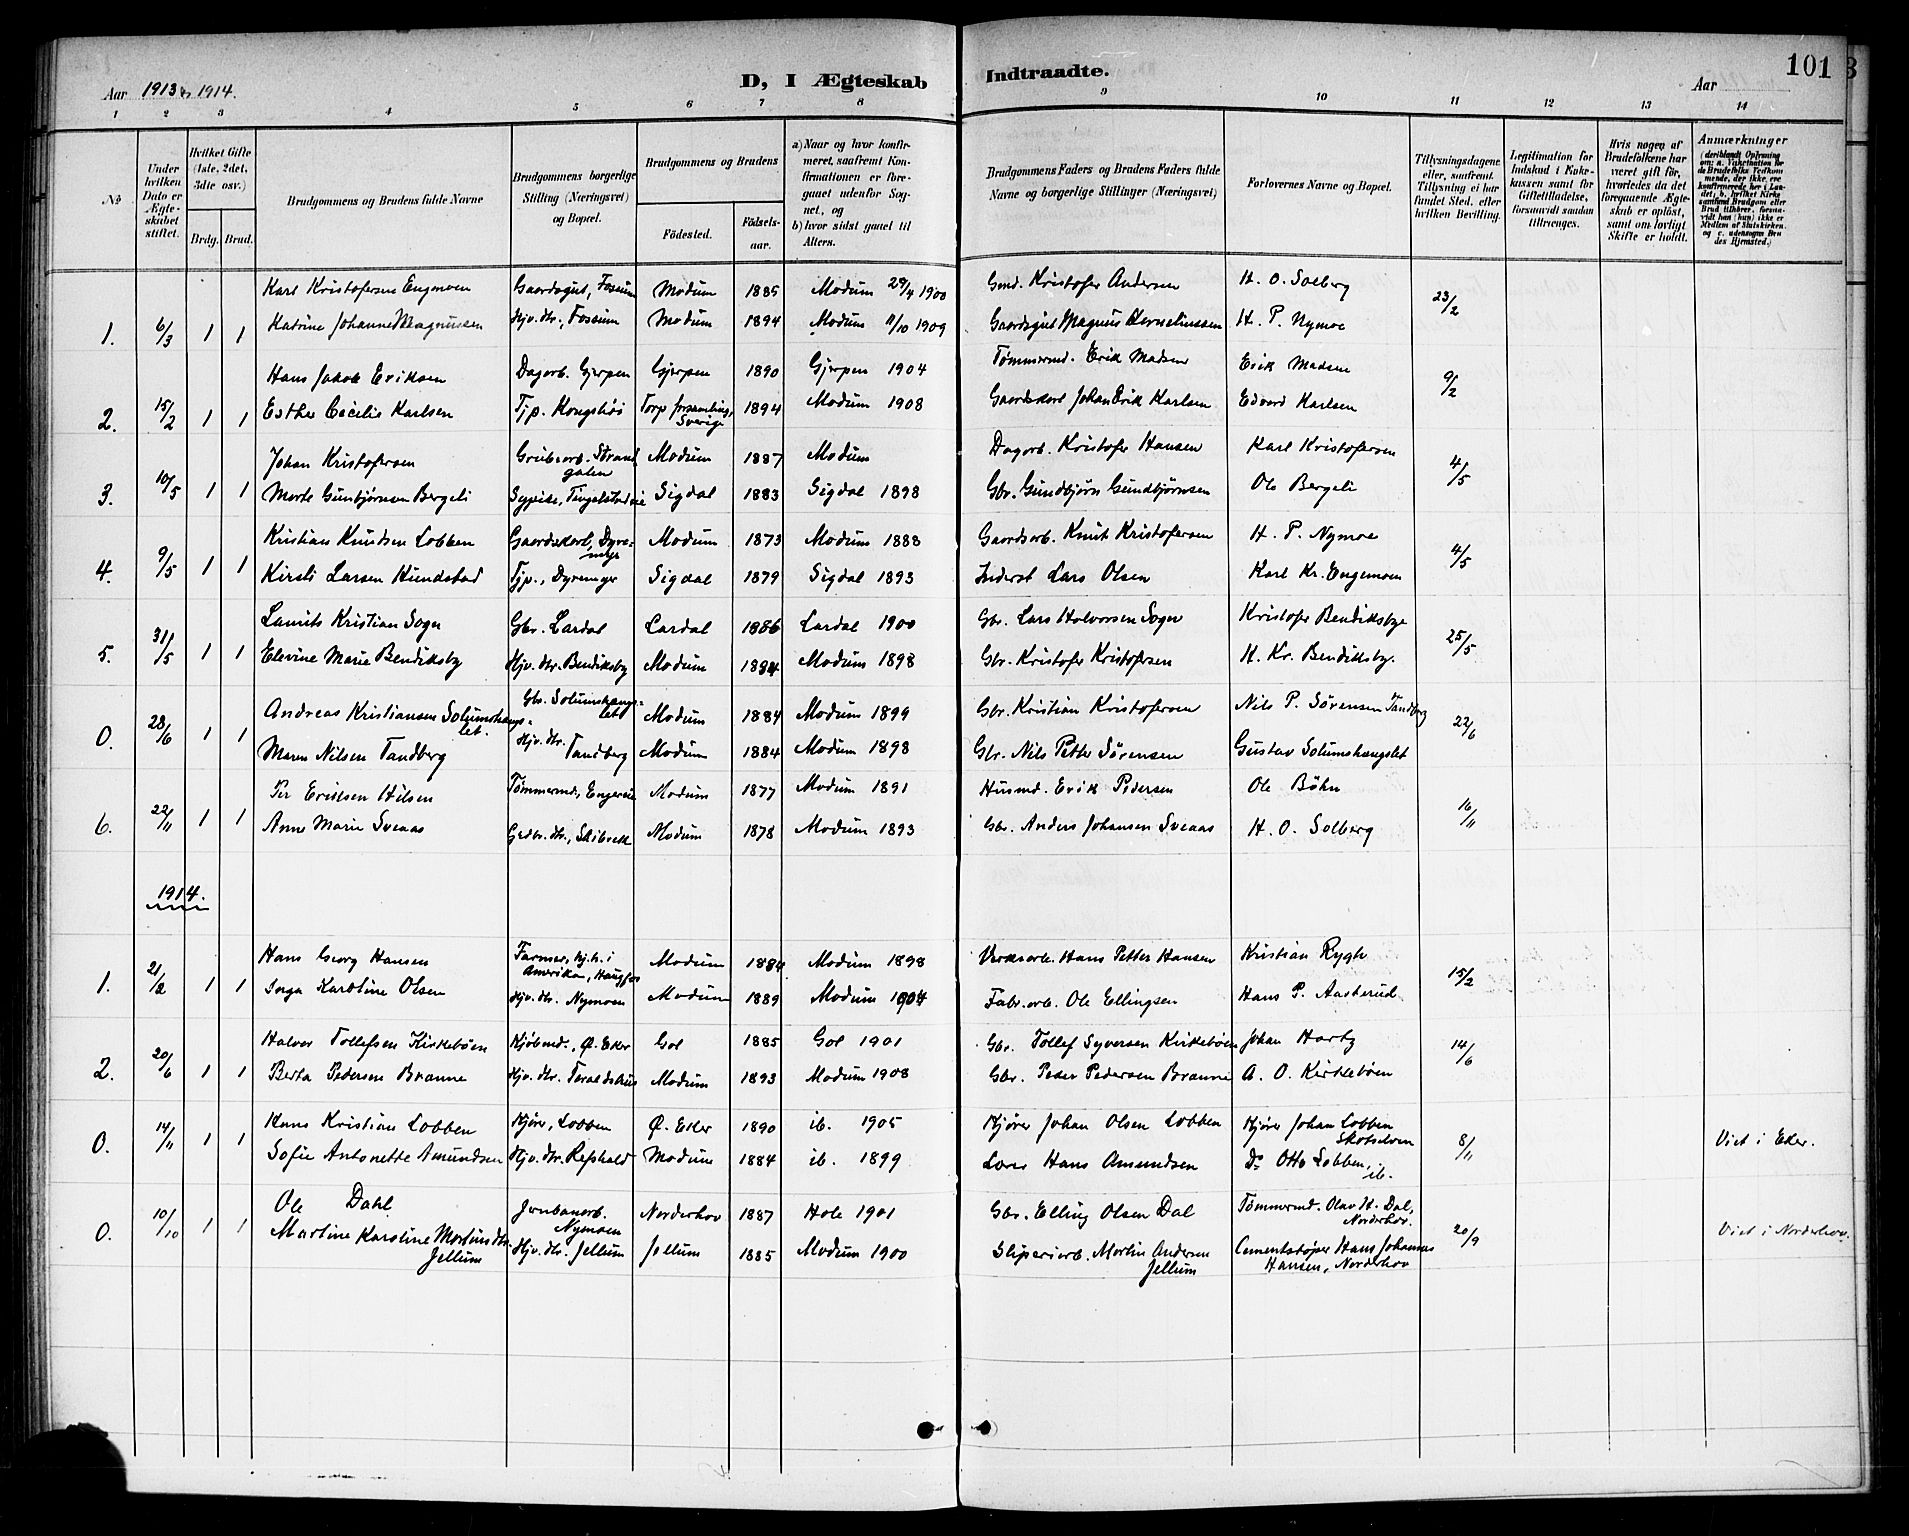 Aar 1913 & 1914.
D, I Ægteskab Indtraadte.
Aar
101
1 2 3 4 5 6 7 8 9 10 11 12 13 14
No
Under hvilken Dato er Ægteskabet stiftet.
Hvilket Gifte (1ste, 2det, 3die osv.)
Brdg. Brud.
Brudgommens og Brudens fulde Navne
Brudgommens borgerlige Stilling (Næringsvei) og Bopæl.
Brudgommens og Brudens
Födested.
Födselsaar.
a) Naar og hvor konfirmeret, saafremt Konfirmationen er foregaaet udenfor Sognet, og
b) hvor sidst gaaet til Alters.
Brudgommens Faders og Brudens Faders fulde Navne og borgerlige Stillinger (Næringsvei)
Forlovernes Navne og Bopæl.
Tillysningsdagene eller, saafremt Tillysning ei har fundet Sted, efter hvilken Bevilling.
Legitimation for Indskud i Enkekassen samt for Giftetilladelse, forsaavidt saadan tiltrænges.
Hvis nogen af Brudefolkene har været gift før, hvorledes da det foregaaende Ægteskab er opløst, samt om lovligt Skifte er holdt.
Anmærkninger
Karl Kristofersen Engmoen Gaardsgut, Fossum Modum 1885 Modum 29/4 1900 Gmd. Kristofer Andersen H. O. Solberg
1. 6/3 1 1 Katrine Johanne Magnussen Hjv. dtr., Fossum Modum 1894 Modum 11/10 1909 Gaardsgut Magnus Corneliussen H. P. Nymoe 23/2
Hans Jakob Eriksen Dagarb. Gjerpen Gjerpen 1890 Gjerpen 1904 Tømmermd. Erik Madsen Erik Madsen
2. 15/2 1 1 Esther Cecilie Karlsen Tjp. Kongshöi Torp forsamling, Sverige 1894 Modum 1908 Gaardskarl Johan Erik Karlsen Edvard Karlsen 9/2
Johan Kristofersen Grubearb. Strandgaten Modum 1887 Modum Dagarb. Kristofer Hansen Karl Kristofersen
3. 10/5 1 1 Marte Gunbjørnsen Bergeli Sypike, Tingelstad Sigdal 1883 Sigdal 1898 Gbr. Gundbjörn Gundbjørnsen Ole Bergeli 4/5
Kristian Knudsen Lobben Gaardskarl, Dyremyr Modum 1873 Modum 1888 Gaardsarb. Knut Kristofersen H. P. Nymoe
4. 9/5 1 1 Kirsti Larsen Hundstad Tjp., Dyremyr Sigdal 1879 Sigdal 1893 Inderst Lars Olsen Karl Kr. Engemoen 4/5
Laurits Kristian Soger Gbr. Lardal Lardal 1886 Lardal 1900 Gbr. Lars Halvorsen Soger Kristofer Bendiksbye
5. 31/5 1 1 Elevine Marie Bendiksby Hjv. dtr. Bendiksby Modum 1884 Modum 1898 Gbr. Kristofer Kristofersen H. Kr. Bendiksby. 25/5
Andreas Kristiansen Solumshaugslet. Gbr. Solumshaugslet Modum 1884 Modum 1899 Gbr. Kristian Kristofersen Nils P. Sörensen Tandberg
0. 28/6 1 1 Maren Nilsen Tandberg Hjv. dtr. Tandberg Modum 1884 Modum 1898 Gbr. Nils Petter Sörensen Gustav Solumshaugslet 22/6
Per Eriksen Hilsen Tömmermd., Engerud Modum 1877 Modum 1891 Husmd. Erik Pedersen Ole Böhn
6. 22/11 1 1 Anne Marie Sveaas Grdbr. dtr., Skibrek Modum 1878 Modum 1893 Gbr. Anders Johansen Sveaas H. O. Solberg 16/11
1914.
Hans Georg Hansen Farmer, Hj. h. i Amerika, Haugfos Modum 1884 Modum 1898 Verksarb. Hans Petter Hansen Kristian Rygh
1. 21/2 1 1 Inga Karoline Olsen Hjv. dtr. Nymoen Modum 1889 Modum 1904 Fabr.arb. Ole Ellingsen Hans P. Aasterud 15/2
Halvor Tollefsen Kirkebøen Kjöbmd., Ø. Eker Gol 1885 Gol 1901 Gbr. Tollef Syversen Kirkebøen Johan Hartz
2. 20/6 1 1 Berta Pedersen Brunne Hjv. dtr. Taraldshus Modum 1893 Modum 1908 Gbr. Peder Pedersen Brunne A. O. Kirkebøen 14/6
Hans Kristian Lobben Kjörer, Lobben Ø. Eker 1890 ib. 1905 Kjörer Johan Olsen Lobben Kjörer Johan Lobben Skotselven
0. 14/11 1 1 Sofie Antonette Amundsen Hjv. dtr. Refshald Modum 1884 ib. 1899 Lars Hans Amundsen Do Otto Lobben, ib. 8/11 Viet i Eker.
Ole Dahl Jernbanarb. Nymoen Norderhov 1887 Hole 1901 Gbr. Elling Olsen Dal Tømmermd. Olav H. Dal, Norderhov.
0. 10/10 1 1 Martine Karoline Mortinsdtr. Jellum Hjv. dtr. Jellum Jellum 1885 Modum 1900 Sliperiarb. Martin Andersen Jellum Cementstøper Hans Johannes Hansen, Norderhov 20/9 Viet i Norderhov.